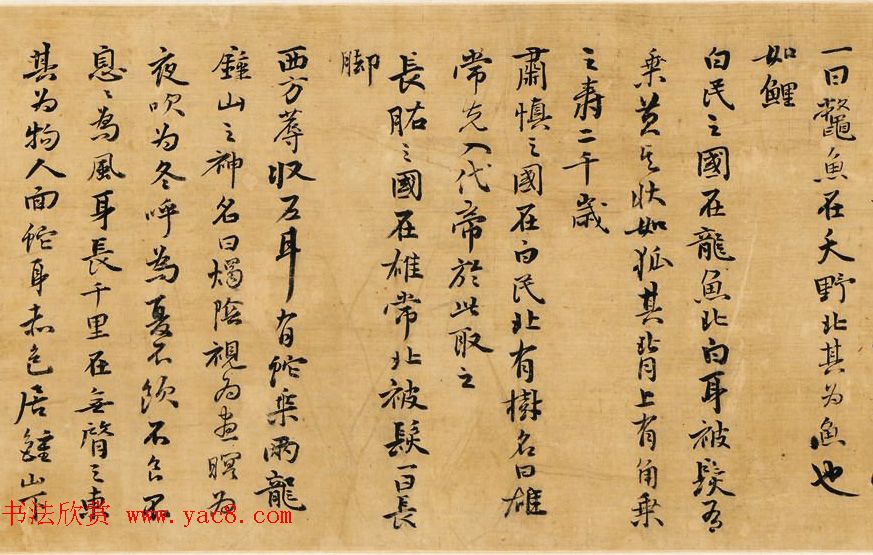 一曰鼈魚在夭野北其为魚也
如鯉
白民之國在龍魚北白耳被髮有
乗黄其状如狐其背上有角乗
之寿二千歳
肅慎之國在白民北有樹名曰雄
常先入代帝於此取之
長股之國在雄常北被髮一曰長
脚
西方蓐収左耳有蛇乗兩龍
鍾山之神名曰燭陰視为晝瞑为
夜吹为冬呼為夏不飲不食不
息〻為風耳長千里在無䏿之東
其为物人面蛇耳赤色居鍾山下
书法欣赏 www.yac8.com